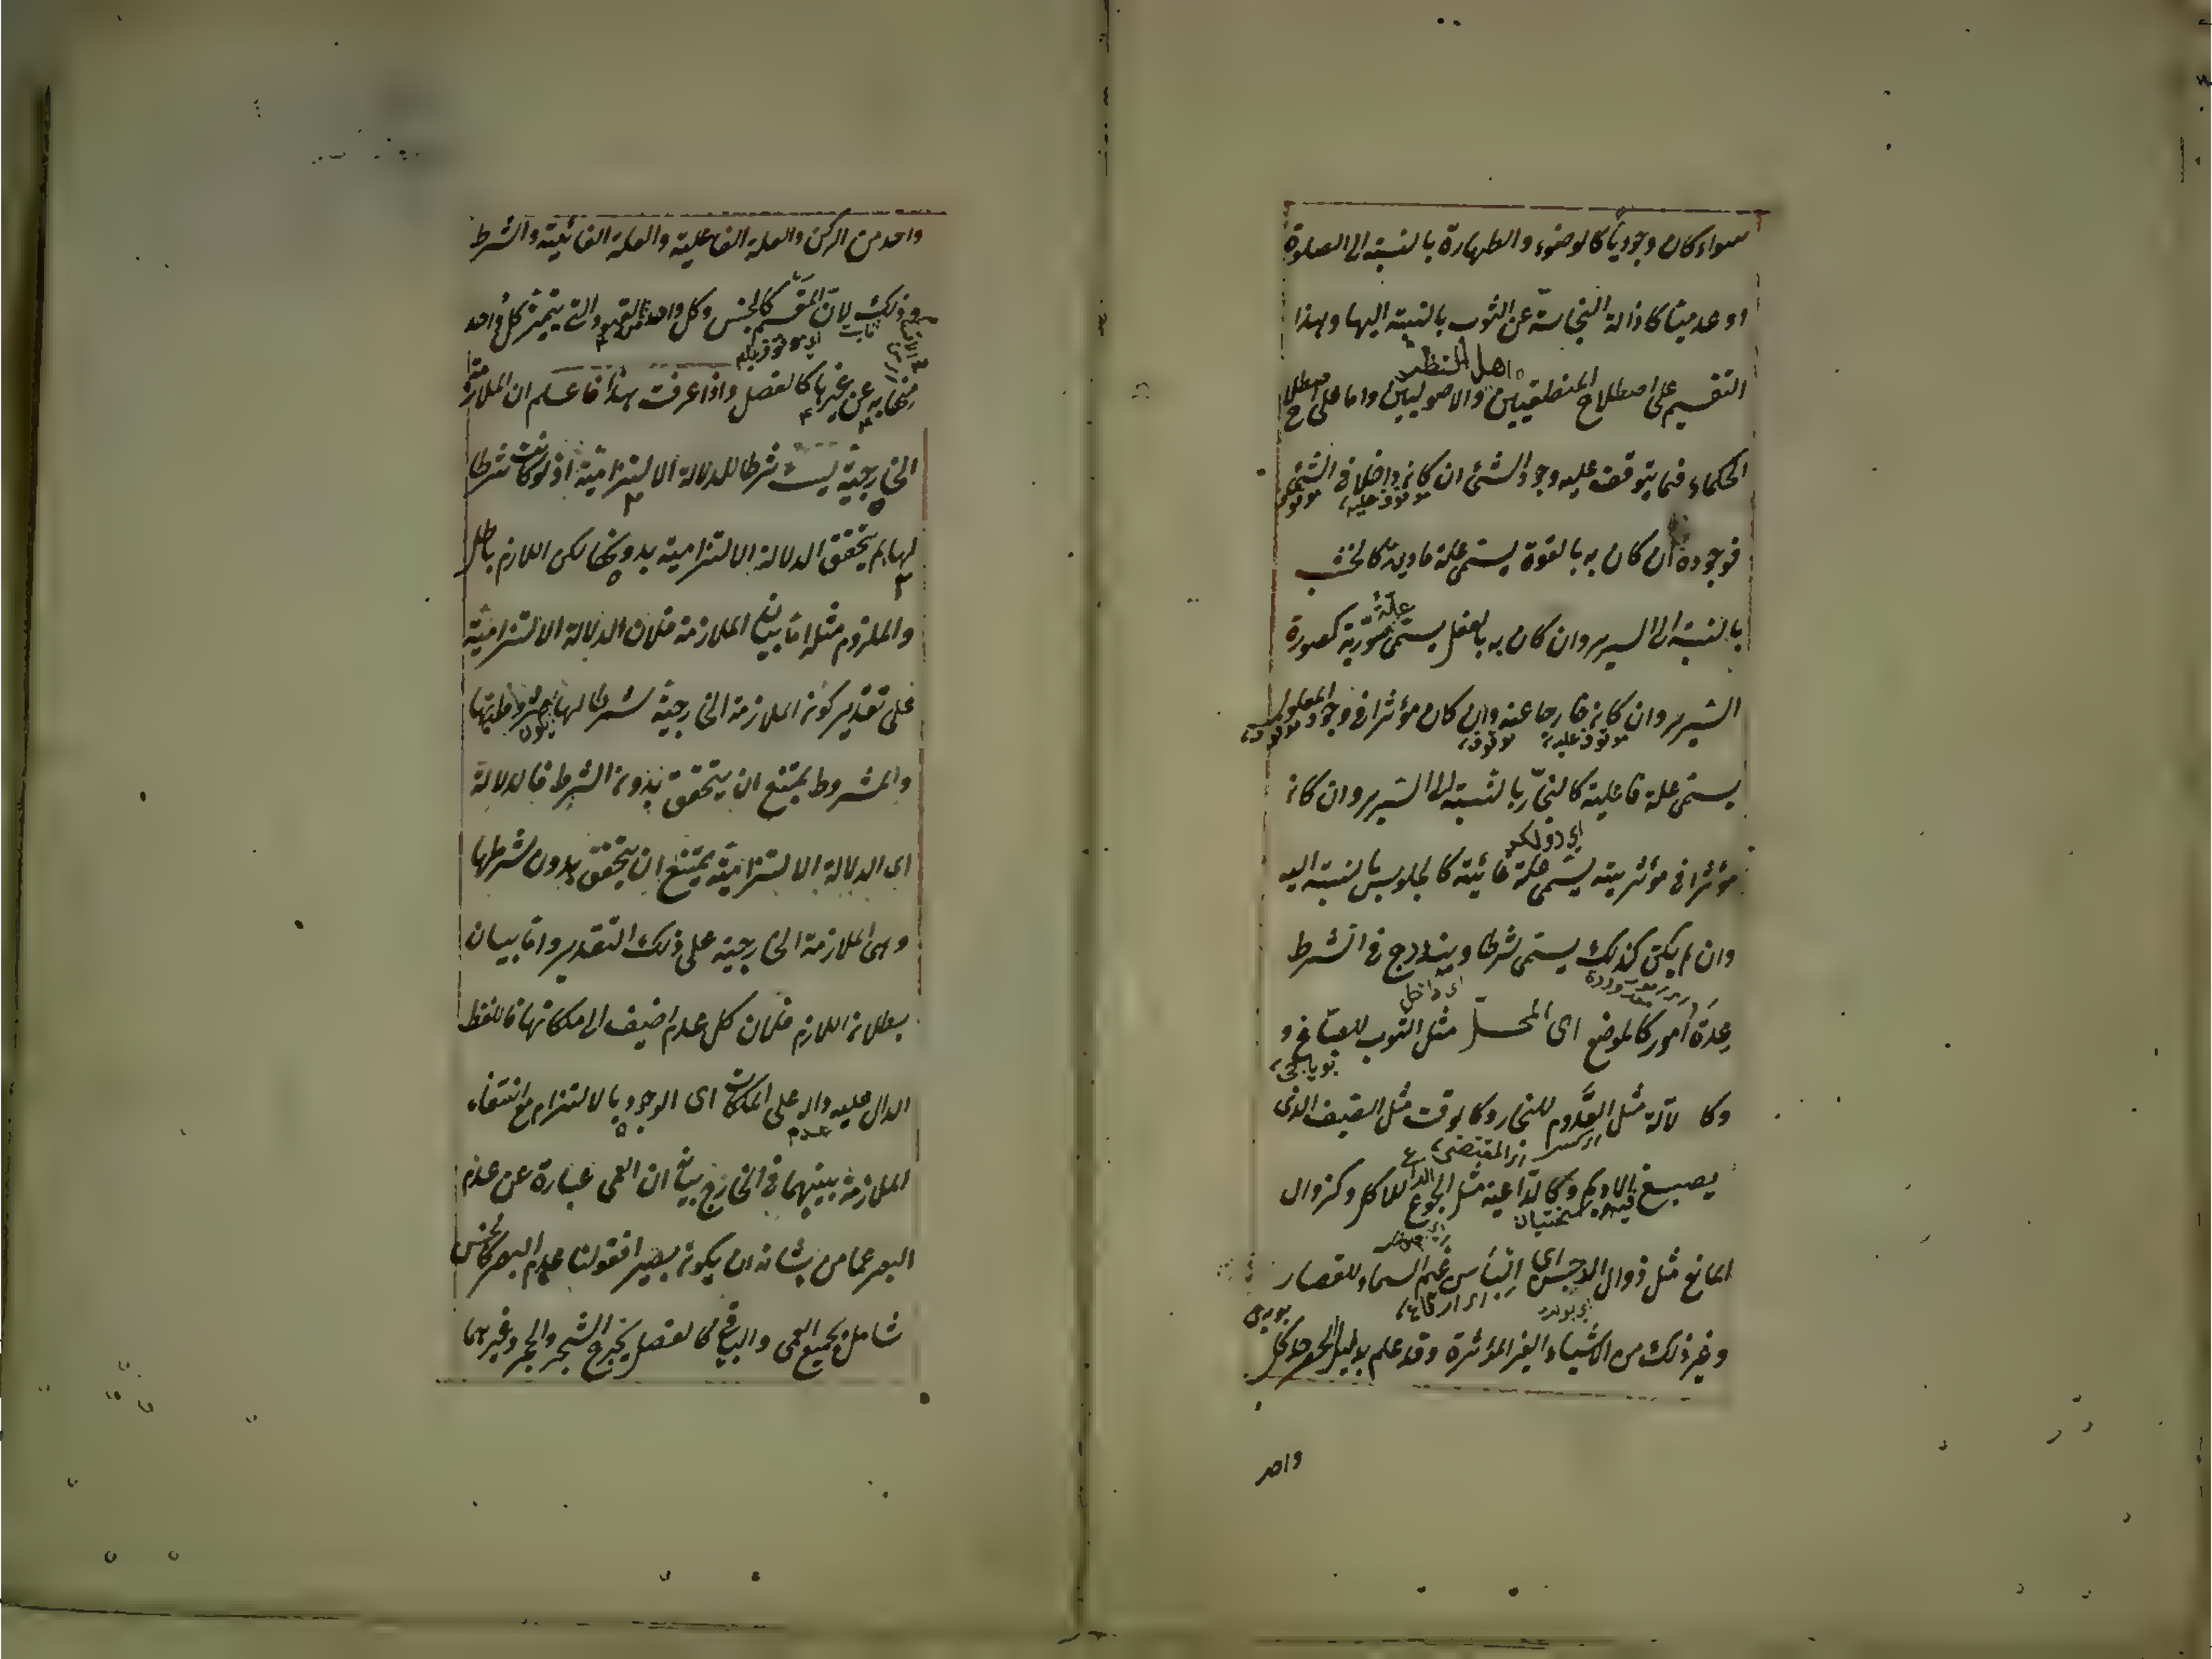 سواء كان وجوديا كالوضوء والطهارة بالنسبة الى الصلوة
او عدميا كازالة النجاسة عن الثوب بالنسبة اليها وهذا
اهل النظر
التقسيم على اصطلاح المنطقيين والاصوليين واما على اصطلاح
الحكماء فما يتوقف عليه وجود الشئ ان كان داخلا فى الشئ
موقوف عليه موقوف
فوجوده ان كان به بالقوة يسمى علة مادية كالخشب
بالنسبة الى السرير وان كان به بالفعل يسمى علة صورية كصورة
السرير وان كان خارجا عنه وان كان مؤثرا فى وجود المعلول
موقوف عليه موقوف موقوف
يسمى علة فاعلية كالنجار بالنسبة الى السرير وان كان
مؤثرا فى مؤثريته يسمى علة غائية كالجلوس بالنسبة اليه
وان لم يكن كذلك يسمى شرطا ويندرج فى الشرط
اى داخل
عدة امور كالموضع اى المحل مثل الثوب للصباغ و
بوياجى
وكا لآلة مثل القدوم للنجار وكالوقت مثل الصيف الذى
المقتضى
يصبغ فيه الاديم وكالداعية مثل الجوع الداعى للاكل وكزوال
سختيان
المانع مثل زوال الدجن اى الباس غيم السماء للقصار
وغير ذلك من الاشياء الغير المؤثرة وقد علم بدليل الحصر حد كل
واحد
واحد من الركن والعلة الفاعلية والعلة الغائية والشرط
وذلك لان المقسم كالجنس وكل واحد من القيود التى يتميز كل واحد
اى موقوف عليه
منها به عن غيرها كالفصل واذا عرفت هذا فاعلم ان الملازمة
الخارجية ليست شرطا للدلالة الالتزامية اذ لو كانت شرطا
لها لم يتحقق الدلالة الالتزامية بدونها لكن اللازم باطل
والملزوم مثله اما بيان الملازمة فلان الدلالة الالتزامية
على تقدير كون الملازمة الخارجية شرطا لها يكون مشروطيتها
والمشروط يمتنع ان يتحقق بدون الشرط فالدلالة
اى الدلالة الالتزامية يمتنع ان يتحقق بدون شرطها
وهى الملازمة الخارجية على ذلك التقدير واما بيان
بطلان اللازم فلان كل عدم اضيف الى ملكاتها فاللفظ
الدال عليه دال على الملكات اى الوجود بالالتزام مع انتفاء
عدم
الملازمة بينهما فى الخارج بيانه ان العمى عبارة عن عدم
البصر عما من شانه ان يكون بصيرا فقولنا عدم البصر كالجنس
شامل لجميع العمى والباقى كالفصل يخرج الشجر والحجر وغيرهما